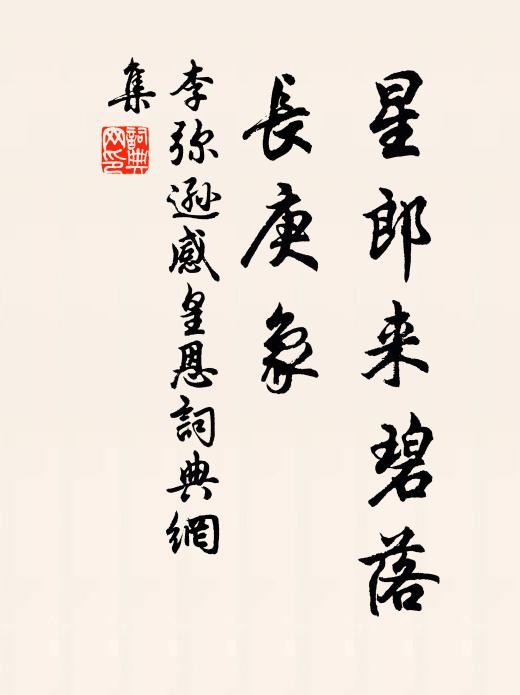 星郎来碧落
長庚象
李弥遜感皇恩詞典網
集
詞典
网印